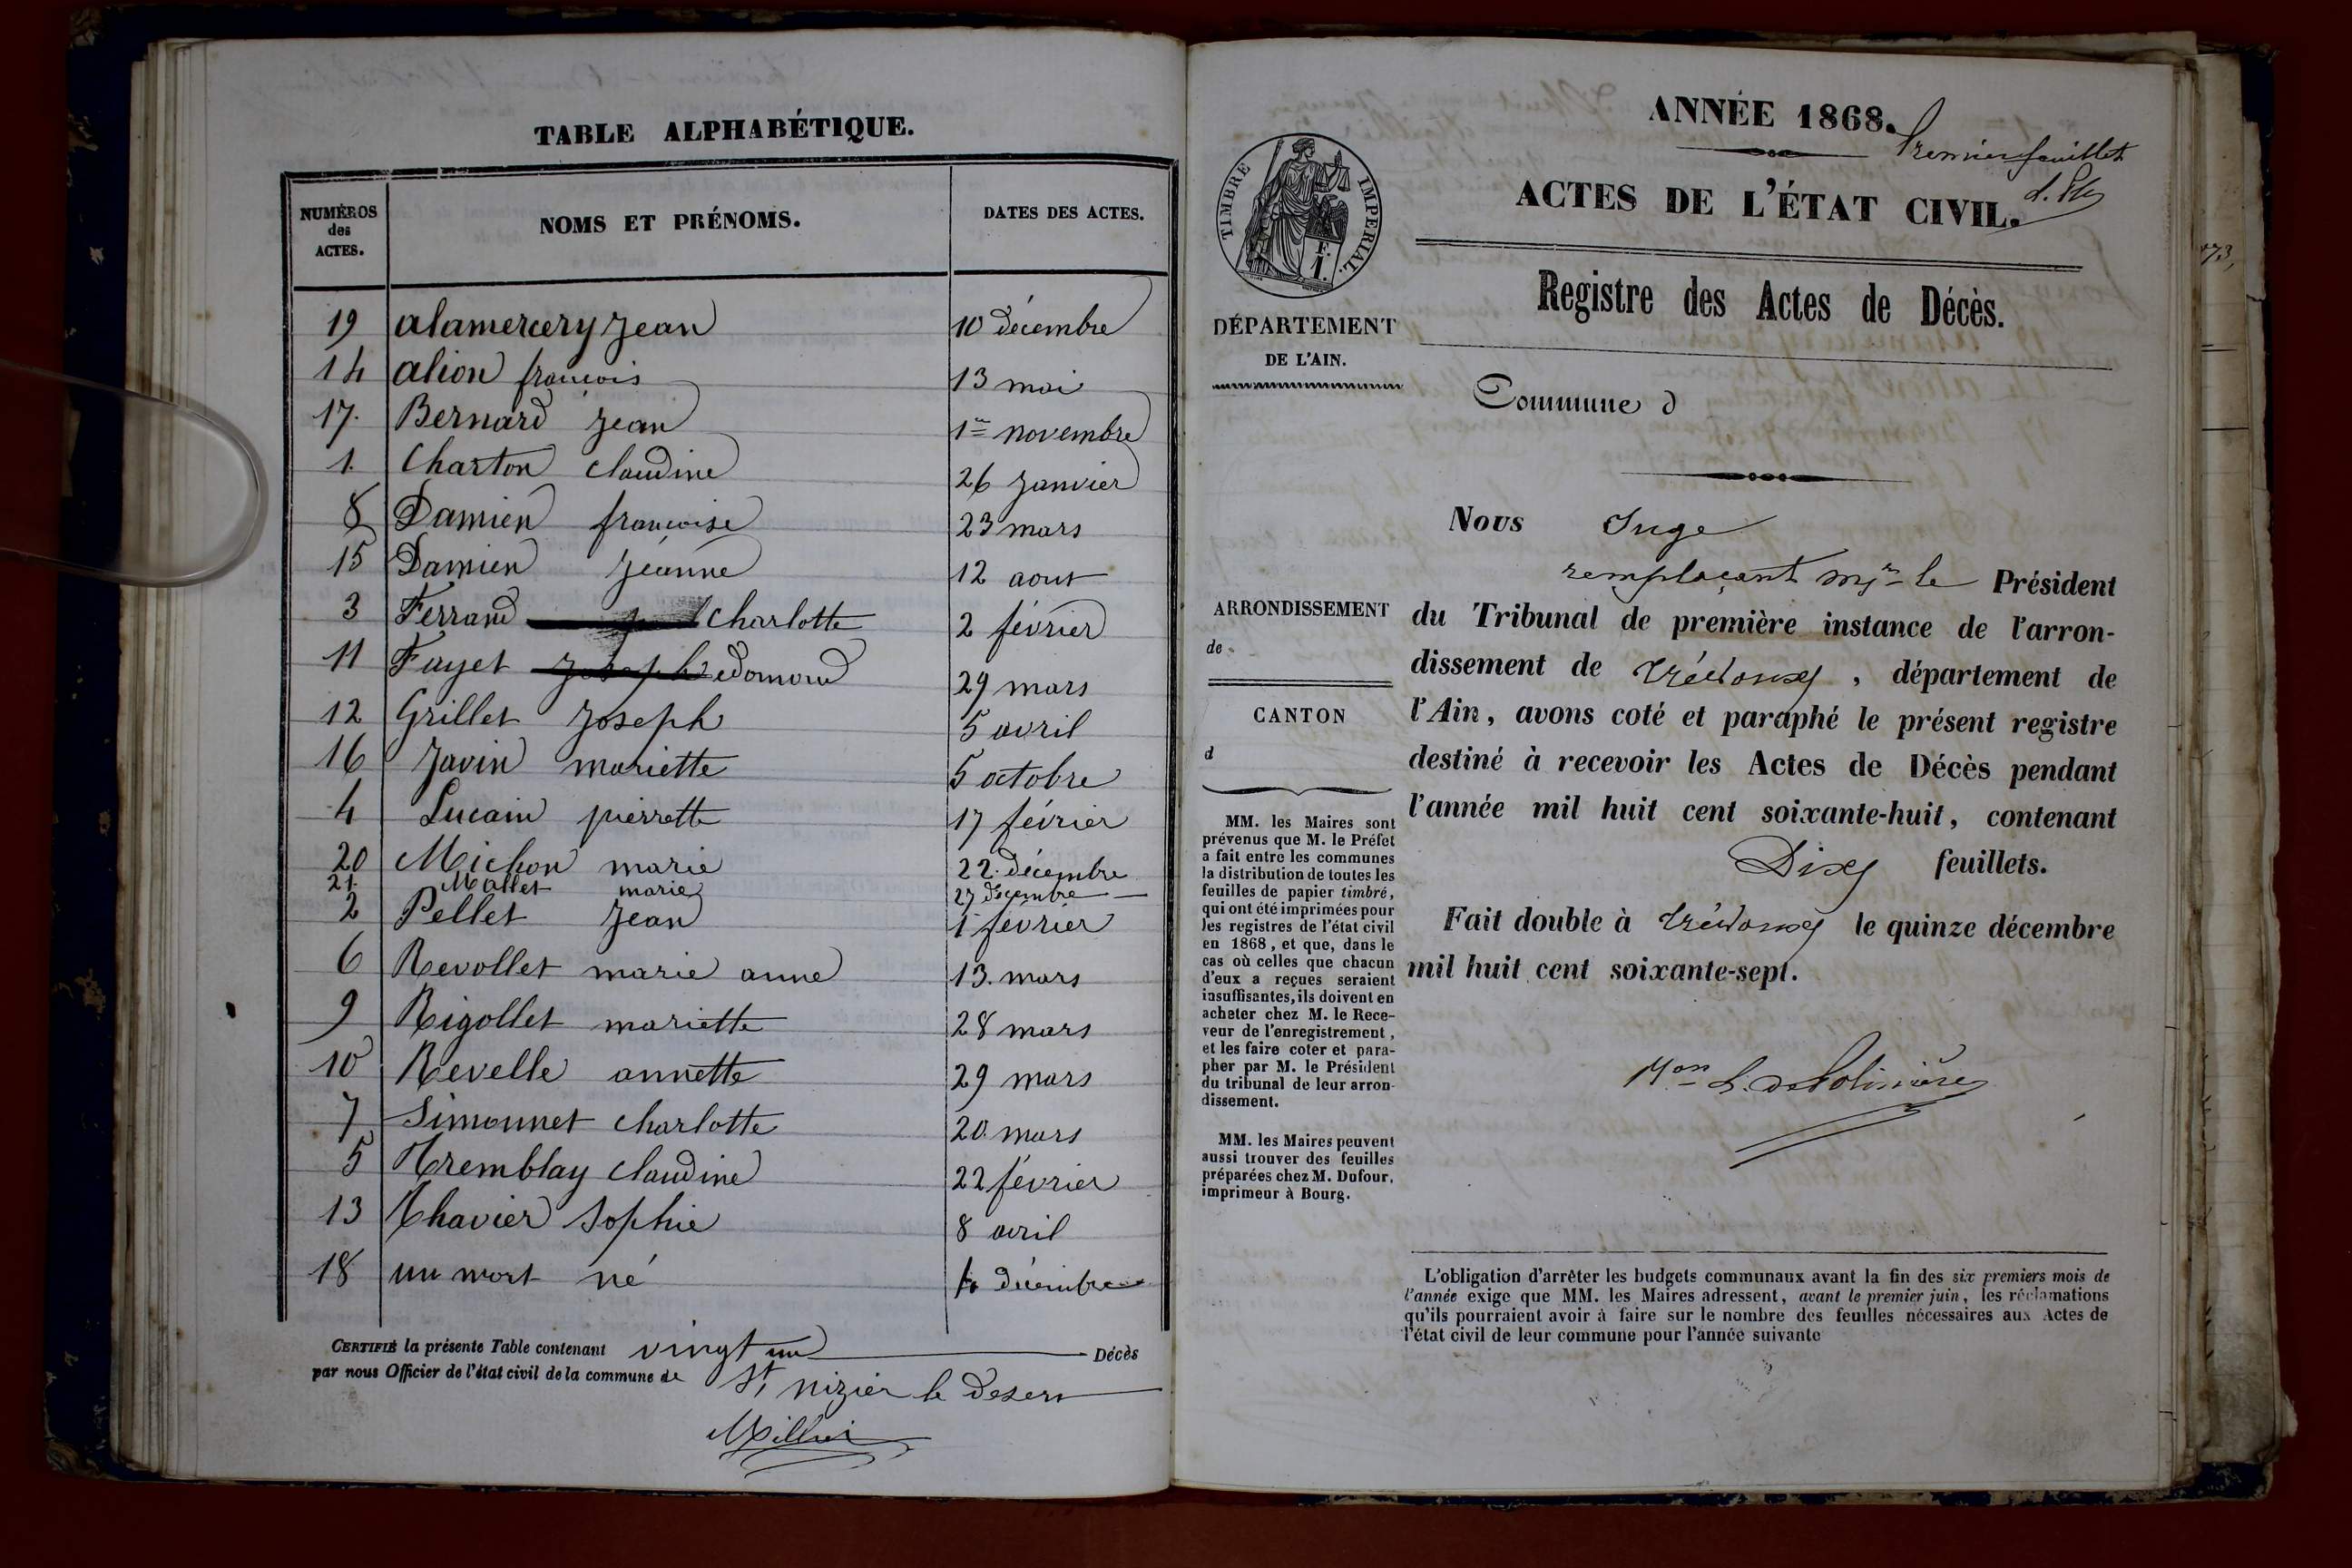 TABLE ALPHABÉTIQUE.
NUMÉROS des ACTES. NOMS ET PRÉNOMS. DATES DES ACTES.
19 alamercery jean 10 décembre
14 alion francois 13 mai
17. Bernard jean 1er novembre
1. Charton claudine 26 janvier
8 Damien francoise 23 mars
15 Damien jeanne 12 aout
3 Ferrand charlotte 2 février
11 Fayet joseph edomond 29 mars
12 Grillet joseph 5 avril
16 Javin mariette 5 octobre
4 Lucain pierrette 17 février
20 Michon marie 22 décembre
21. Mallet marie 27 décembre
2 Pellet jean 1er février
6 Revollet marie anne 13. mars
9 Rigollet mariette 28 mars
10 Revelle annette 29 mars
7 Simonnet charlotte 20. mars
5 Tremblay claudine 22 février
13 Thavier sophie 8 avril
18 un mort né 4 décembre
CERTIFIÉ la présente Table contenant vingt un Décès
par nous Officier de l'état civil de la commune de St nizier le Desert
Millet
ANNÉE 1868.
Premier feuillet
ACTES DE L'ÉTAT CIVIL.
TIMBRE IMPERIAL.
1 F.
Registre des Actes de Décès.
DÉPARTEMENT
DE L'AIN.
Commune d
Nous Juge
remplaçant Mr le Président
du Tribunal de première instance de l'arron-
dissement de Trévoux, département de
l'Ain, avons coté et paraphé le présent registre
destiné à recevoir les Actes de Décès pendant
l'année mil huit cent soixante-huit, contenant
Dix feuillets.
Fait double à Trévoux le quinze décembre
mil huit cent soixante-sept.
ARRONDISSEMENT
de
CANTON
d
MM. les Maires sont
prévenus que M. le Préfet
a fait entre les communes
la distribution de toutes les
feuilles de papier timbré,
qui ont été imprimées pour
les registres de l'état civil
en 1868, et que, dans le
cas où celles que chacun
d'eux a reçues seraient
insuffisantes, ils doivent en
acheter chez M. le Rece-
veur de l'enregistrement,
et les faire coter et para-
pher par M. le Président
du tribunal de leur arron-
dissement.
MM. les Maires peuvent
aussi trouver des feuilles
préparées chez M. Dufour,
imprimeur à Bourg.
L'obligation d'arrêter les budgets communaux avant la fin des six premiers mois de
l'année exige que MM. les Maires adressent, avant le premier juin, les réclamations
qu'ils pourraient avoir à faire sur le nombre des feuilles nécessaires aux Actes de
l'état civil de leur commune pour l'année suivante